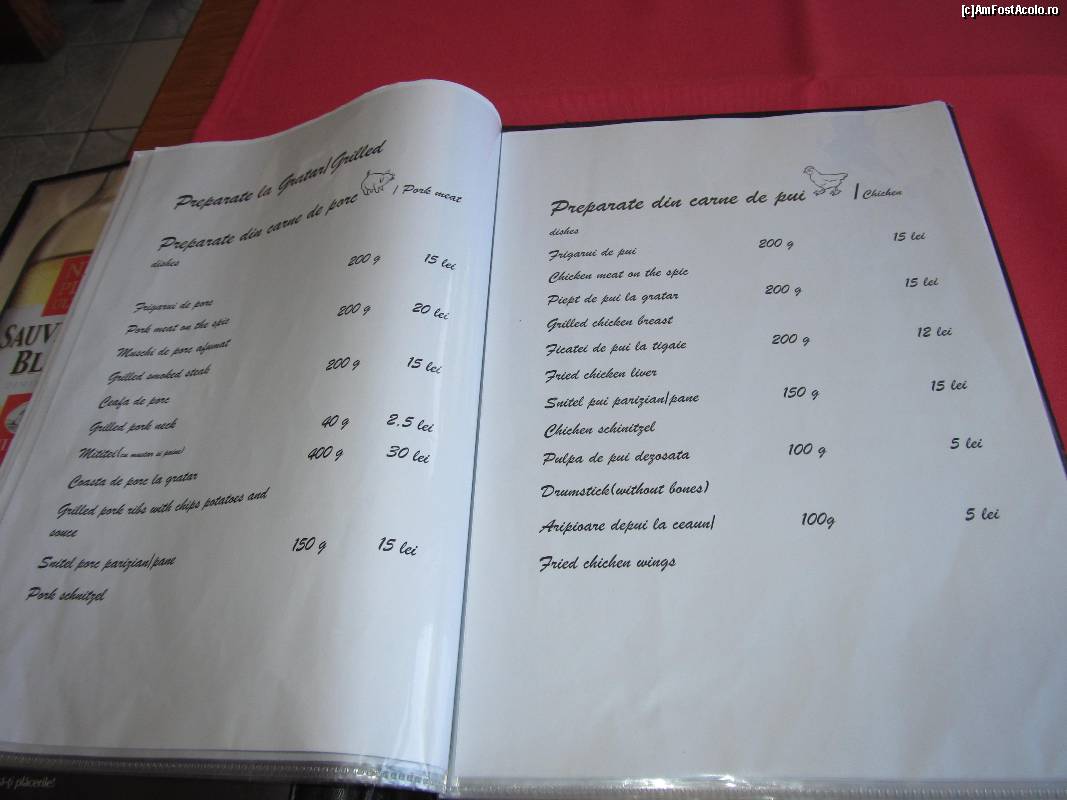 [c]AmFostAcolo.ro
Preparate la Gratar/Grilled
Preparate din carne de porc / Pork meat
dishes
Frigarui de porc 200 g 15 lei
Pork meat on the spic
Muschi de porc afumat 200 g 20 lei
Grilled smoked steak
Ceafa de porc 200 g 15 lei
Grilled pork neck
Mititei(cu mustar si paine) 40 g 2.5 lei
Coasta de porc la gratar 400 g 30 lei
Grilled pork ribs with chips potatoes and
souce
Snitel porc parizian/pane 150 g 15 lei
Pork schnitzel
Preparate din carne de pui | Chicken
dishes
Frigarui de pui 200 g 15 lei
Chicken meat on the spic
Piept de pui la gratar 200 g 15 lei
Grilled chicken breast
Ficatei de pui la tigaie 200 g 12 lei
Fried chicken liver
Snitel pui parizian/pane 150 g 15 lei
Chicken schinitzel
Pulpa de pui dezosata 100 g 5 lei
Drumstick(without bones)
Aripioare depui la ceaun/ 100g 5 lei
Fried chicken wings
SAUV
BL
plăcerile!